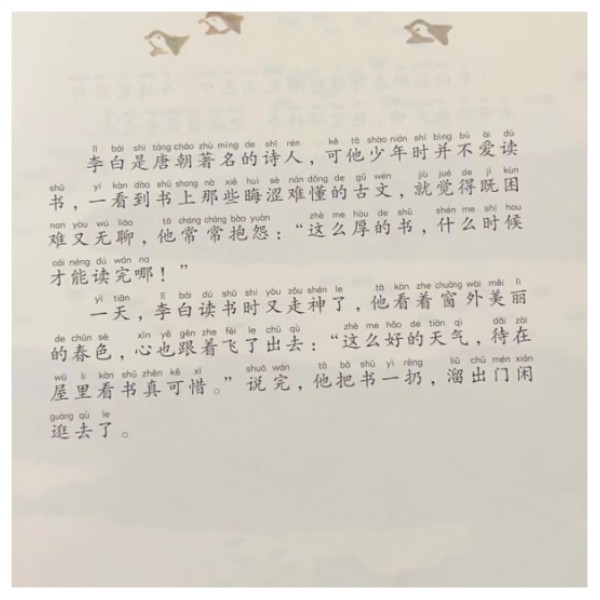 lǐ bái shì táng cháo zhù míng de shī rén kě tā shào nián shí bìng bú ài dú
李白是唐朝著名的诗人，可他少年时并不爱读
shū yí kàn dào shū shang nà xiē huì sè nán dǒng de gǔ wén jiù jué de jì kùn
书，一看到书上那些晦涩难懂的古文，就觉得既困
nan yòu wú liáo tā cháng cháng bào yuàn zhè me hòu de shū shén me shí hou
难又无聊，他常常抱怨：“这么厚的书，什么时候
cái néng dú wán na
才能读完哪！”
yì tiān lǐ bái dú shū shí yòu zǒu shén le tā kàn zhe chuāng wài měi lì
一天，李白读书时又走神了，他看着窗外美丽
de chūn sè xīn yě gēn zhe fēi le chū qù zhè me hǎo de tiān qì dāi zài
的春色，心也跟着飞了出去：“这么好的天气，待在
wū li kàn shū zhēn kě xī shuō wán tā bǎ shū yì rēng liū chū mén xián
屋里看书真可惜。”说完，他把书一扔，溜出门闲
guàng qù le
逛去了。